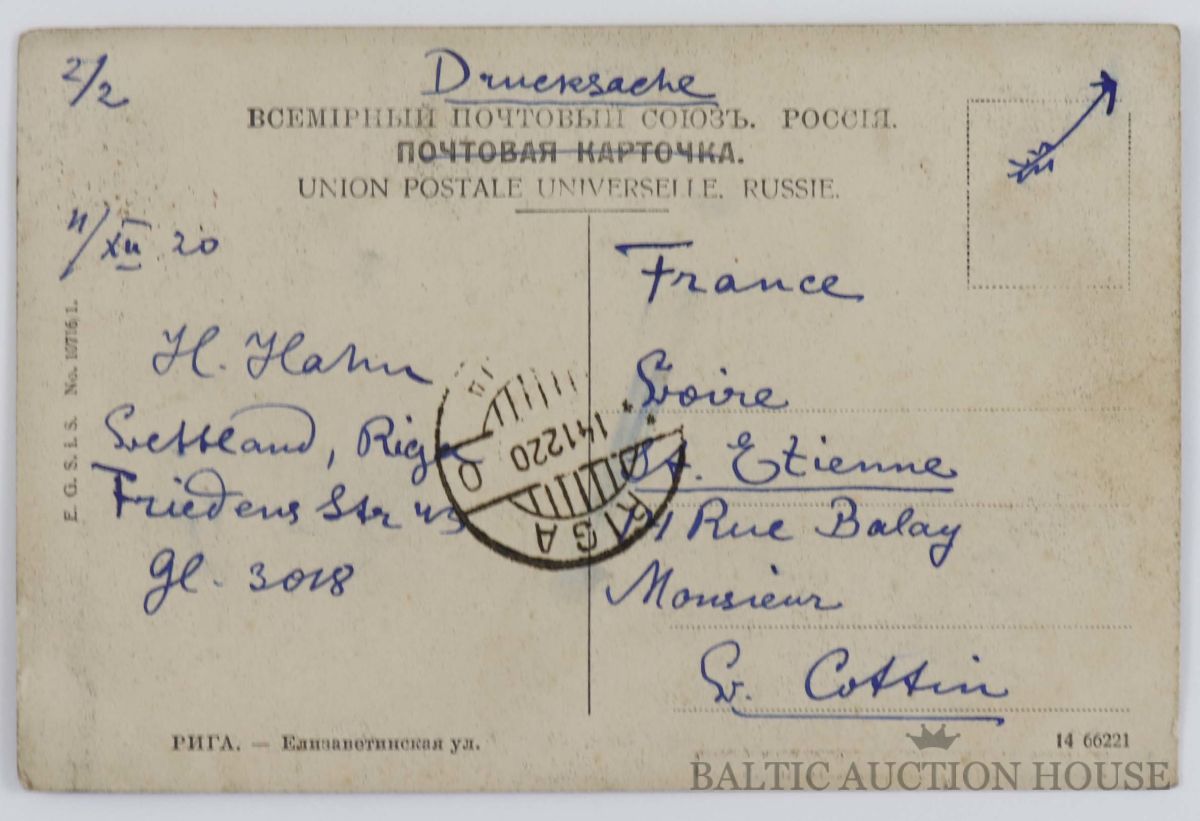 2/2
Drucksache
ВСЕМІРНЫЙ ПОЧТОВЫЙ СОЮЗЪ. РОССІЯ.
ПОЧТОВАЯ КАРТОЧКА.
UNION POSTALE UNIVERSELLE. RUSSIE.
11/XII 20
H. Hahn
Lettland, Riga
Friedens Str 43
gl. 3018
E. G. S. i. S. No. 10716/1.
RIGA
141220
France
Loire
St. Etienne
Rue Balay
Monsieur
L. Cottin
РИГА. — Елизаветинская ул.
14 66221
BALTIC AUCTION HOUSE